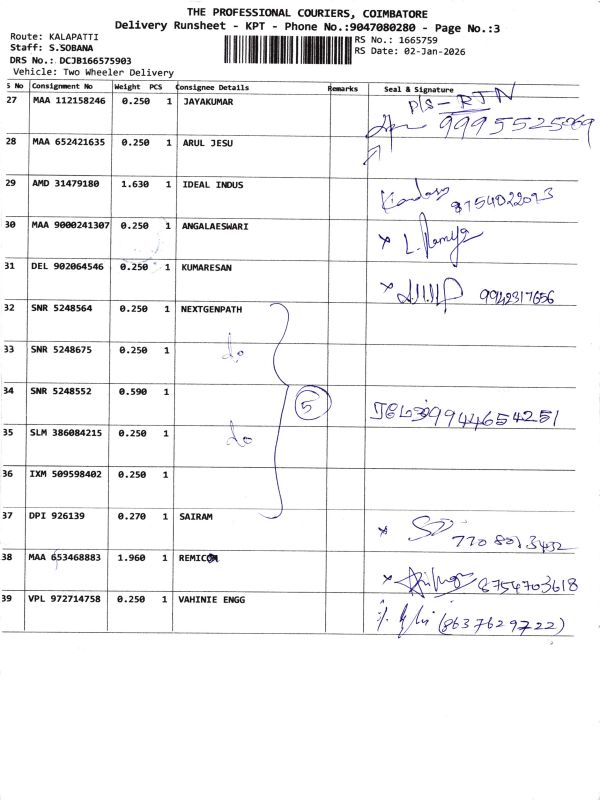 THE PROFESSIONAL COURIERS, COIMBATORE
Delivery Runsheet - KPT - Phone No.:9047080280 - Page No.:3
Route: KALAPATTI
Staff: S.SOBANA
DRS No.: DCJB166575903
Vehicle: Two Wheeler Delivery
RS No.: 1665759
RS Date: 02-Jan-2026
S No Consignment No Weight PCS Consignee Details Remarks Seal & Signature
27 MAA 112158246 0.250 1 JAYAKUMAR P/S - RTN
9995525069
28 MAA 652421635 0.250 1 ARUL JESU
29 AMD 31479180 1.630 1 IDEAL INDUS 8754022073
30 MAA 9000241307 0.250 1 ANGALAESWARI x L. Ramya
31 DEL 902064546 0.250 1 KUMARESAN x 9942317656
32 SNR 5248564 0.250 1 NEXTGENPATH
33 SNR 5248675 0.250 1 do
34 SNR 5248552 0.590 1 5 9944654251
35 SLM 386084215 0.250 1 do
36 IXM 509598402 0.250 1
37 DPI 926139 0.270 1 SAIRAM x
38 MAA 653468883 1.960 1 REMICON x 8754703618
39 VPL 972714758 0.250 1 VAHINIE ENGG (8637629722)